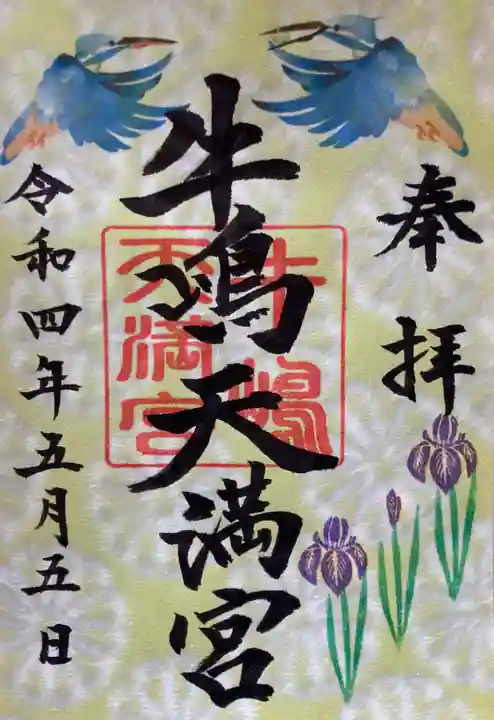 奉拝
牛嶋天満宮
牛嶋
天満宮
令和四年五月五日